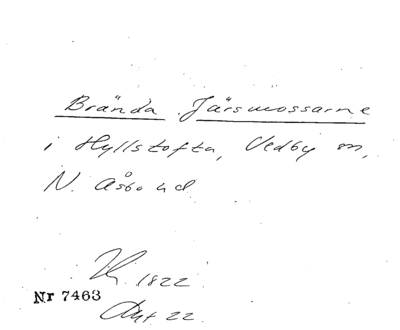 Brända Järsmossarne
i Hyllstofta, Vedby sn,
N. Åsbo hd
1822
Nr 7463
22